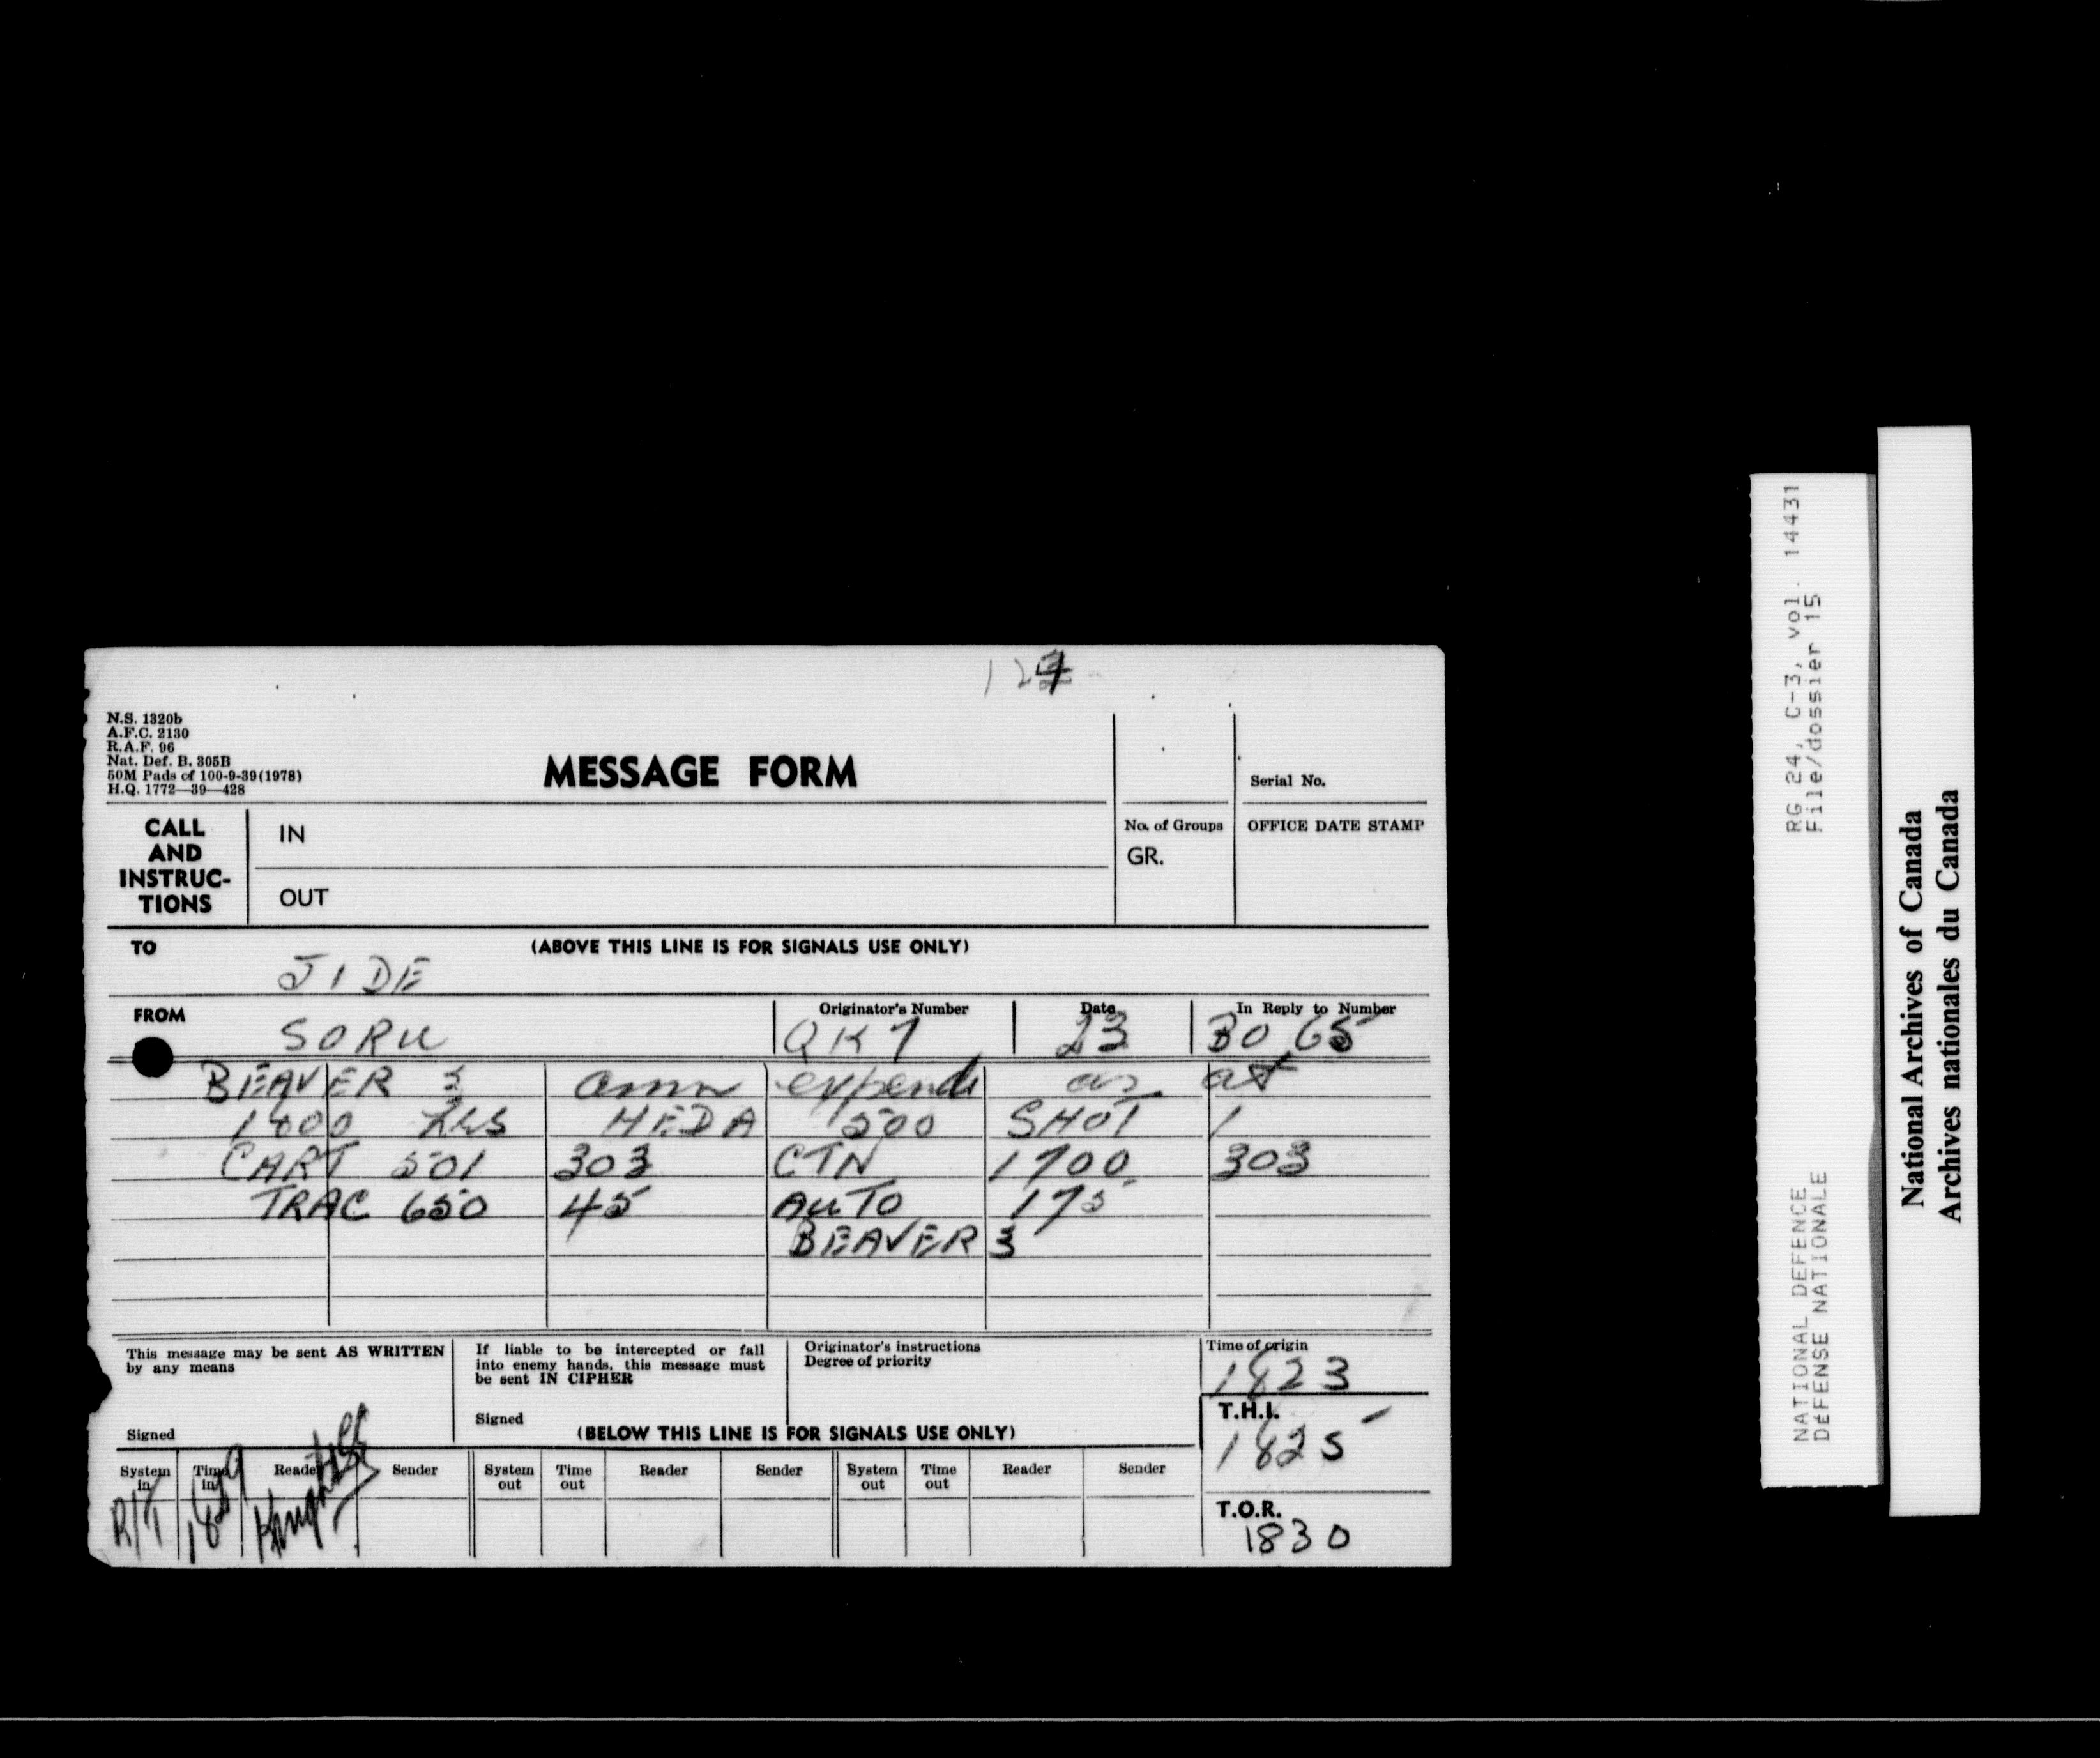 127
N.S. 1320b
A.F.C. 2130
R.A.F. 96
Nat. Def. B. 305B
50M Pads of 100-9-39(1978)
H.Q. 1772—39—428
MESSAGE FORM
Serial No.
CALL AND INSTRUC-TIONS
IN
OUT
No. of Groups
GR.
OFFICE DATE STAMP
TO
(ABOVE THIS LINE IS FOR SIGNALS USE ONLY)
JIDE
FROM
SORU
Originator's Number
QK7
Date
23
In Reply to Number
BO 65
BEAVER 3 amn expend as at
1800 HRS HEDA 1500 SHOT 1
CART 501 303 CTN 1700 303
TRAC 650 45 AUTO 175
BEAVER 3
This message may be sent AS WRITTEN
by any means
Signed
If liable to be intercepted or fall
into enemy hands, this message must
be sent IN CIPHER
Signed
Originator's instructions
Degree of priority
(BELOW THIS LINE IS FOR SIGNALS USE ONLY)
Time of origin
1823
T.H.I.
1825
T.O.R.
1830
System in
Time in
Reader
Sender
System out
Time out
Reader
Sender
System out
Time out
Reader
Sender
R/T
RG 24, C-3, vol. 14431
File/dossier 15
NATIONAL DEFENCE
DÉFENSE NATIONALE
National Archives of Canada
Archives nationales du Canada